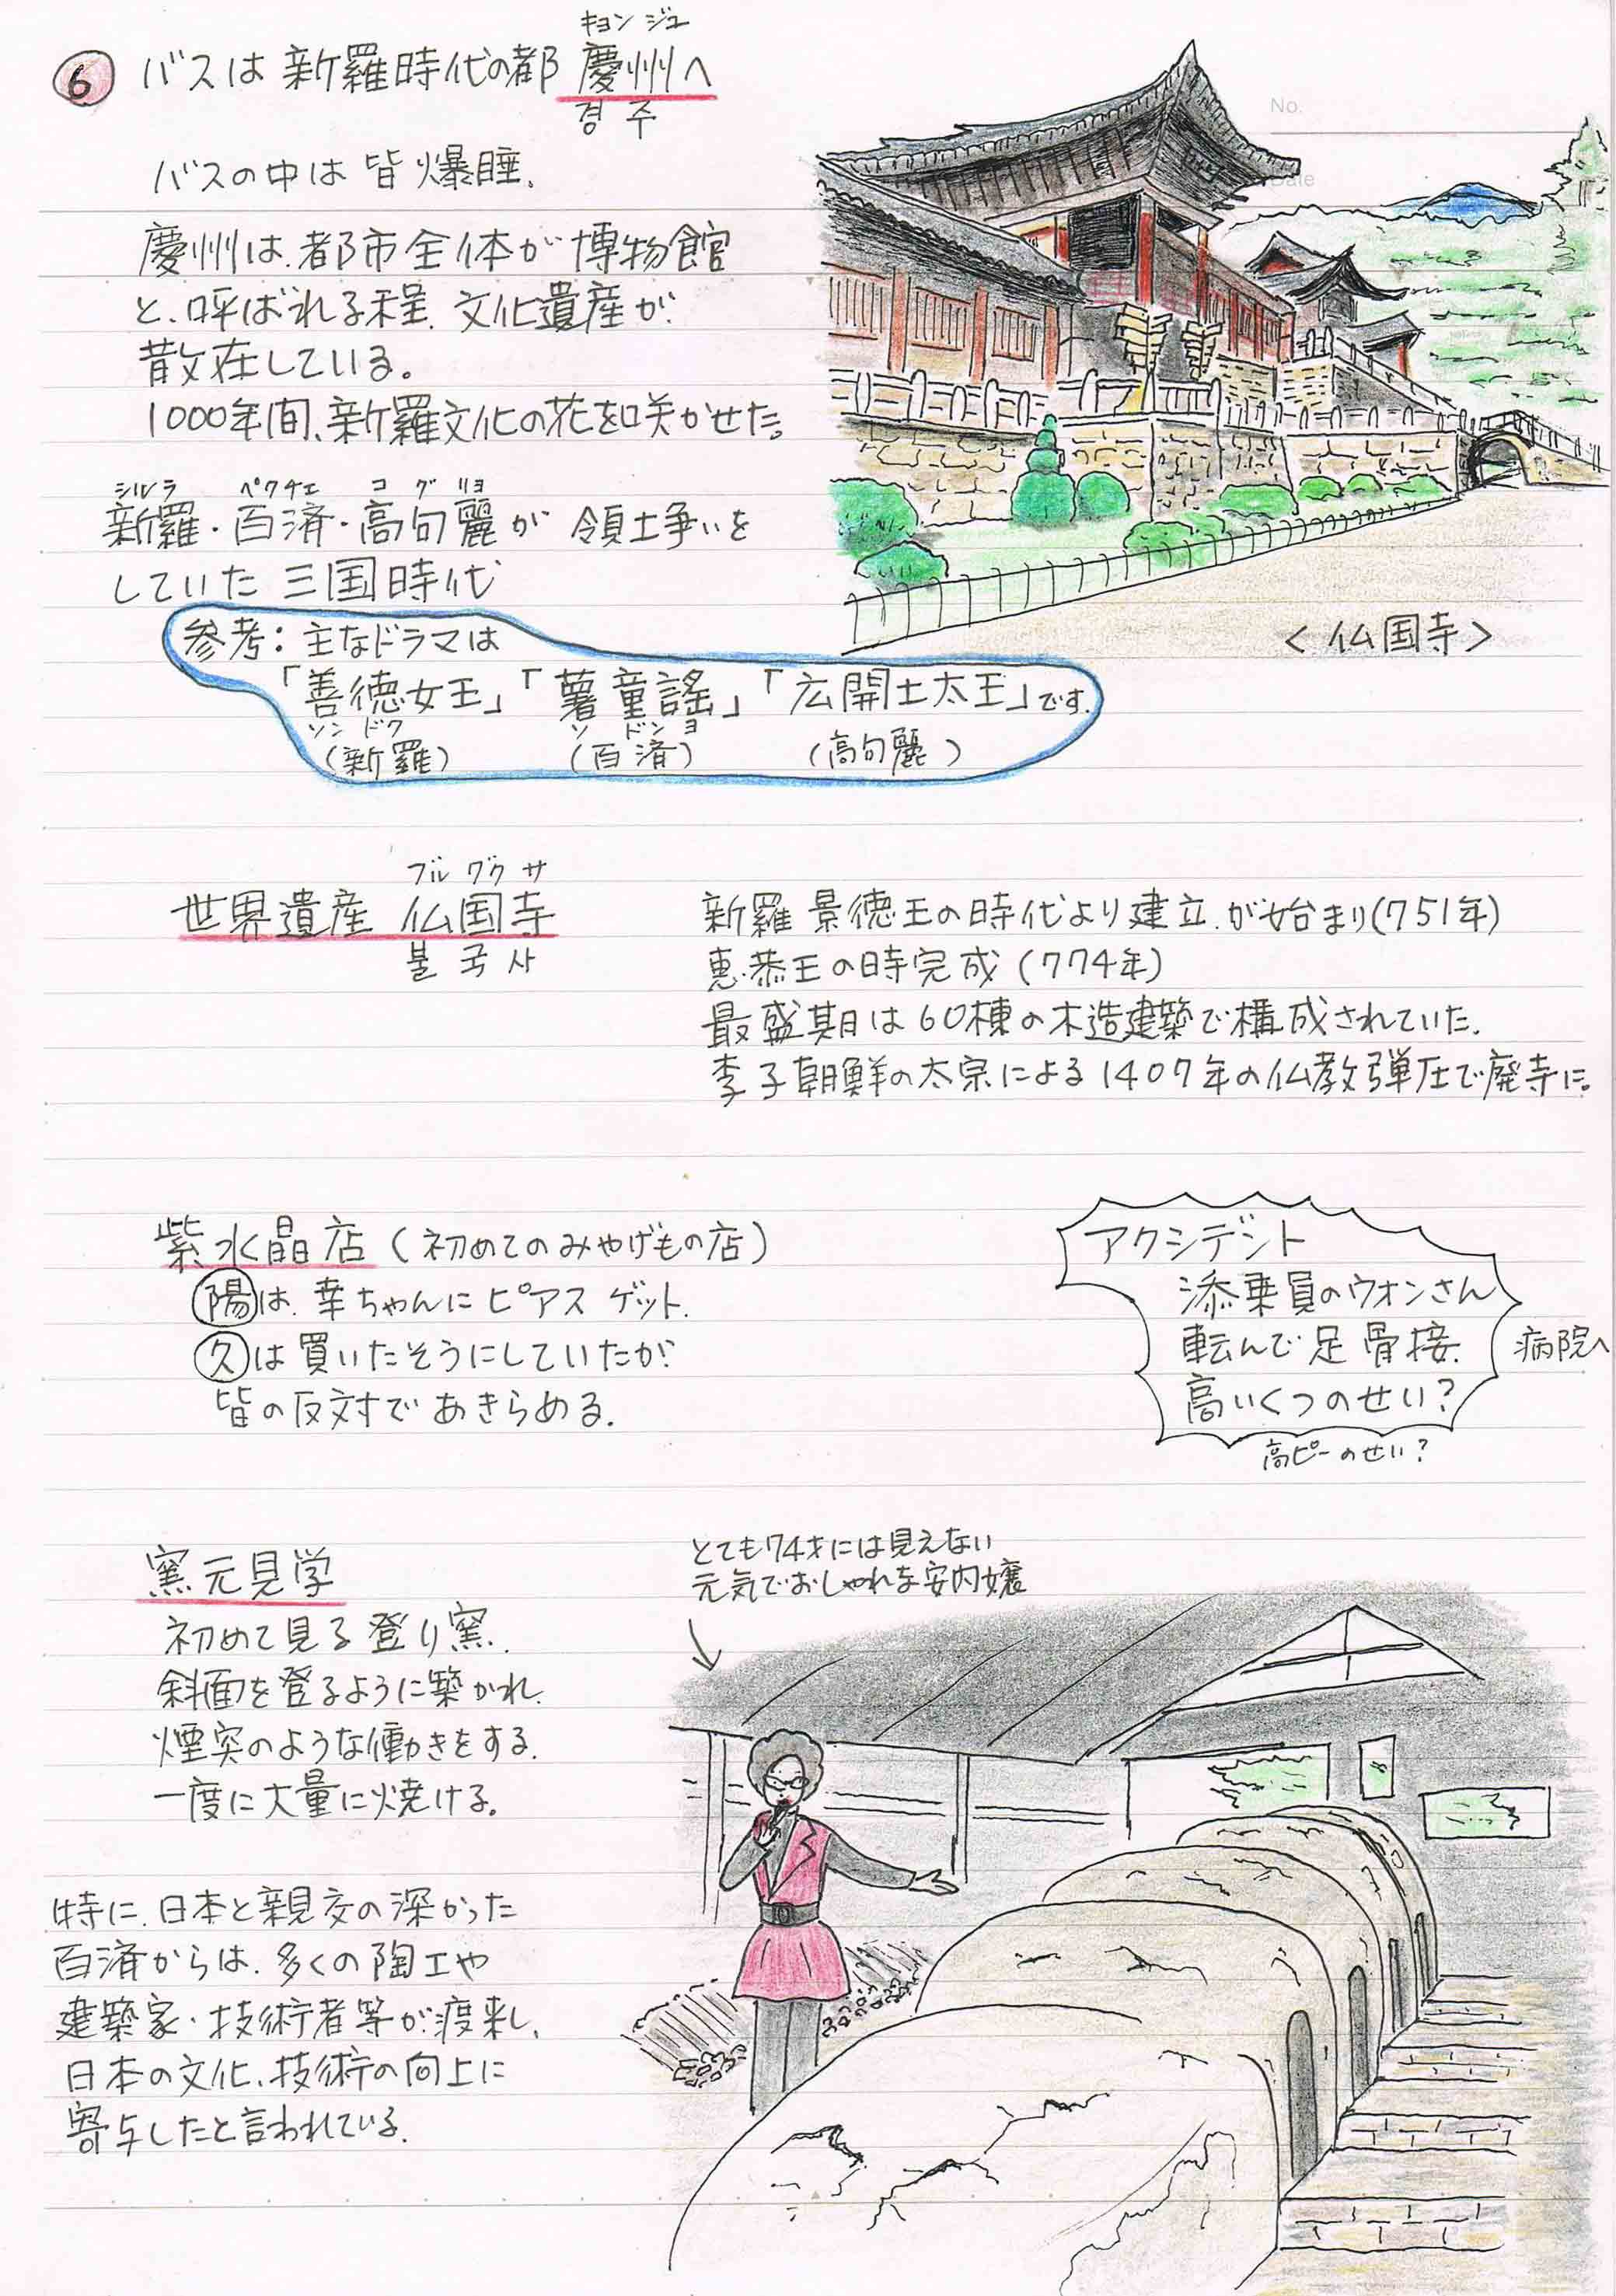 キョンジュ
⑥ バスは新羅時代の都 慶州へ
경주
No.
Date
バスの中は皆爆睡.
慶州は.都市全体が博物館
と、呼ばれる程.文化遺産が
散在している。
1000年間、新羅文化の花を咲かせた。
シルラ ペクチェ コグリョ
新羅・百済・高句麗が 領土争いを
していた 三国時代
<仏国寺>
参考:主なドラマは
「善徳女王」「薯童謡」「広開土太王」です.
ソンドク ソドンヨ
(新羅) (百済) (高句麗)
ブルグクサ
世界遺産 仏国寺
불국사
新羅 景徳王の時代より建立が始まり(751年)
恵恭王の時完成(774年)
最盛期は60棟の木造建築で構成されていた.
李子朝鮮の太宗による1407年の仏教弾圧で廃寺に。
紫水晶店(初めてのみやげもの店)
陽は.幸ちゃんにピアスゲット.
久は買いたそうにしていたが
皆の反対であきらめる.
アクシデント
添乗員のウオンさん
転んで足骨接. 病院へ
高いくつのせい?
高ピーのせい?
窯元見学
初めて見る登り窯.
斜面を登るように築かれ.
煙突のような働きをする.
一度に大量に焼ける。
とても74才には見えない
元気でおしゃれな案内嬢
特に.日本と親交の深かった
百済からは.多くの陶工や
建築家・技術者等が渡来し、
日本の文化、技術の向上に
寄与したと言われている.